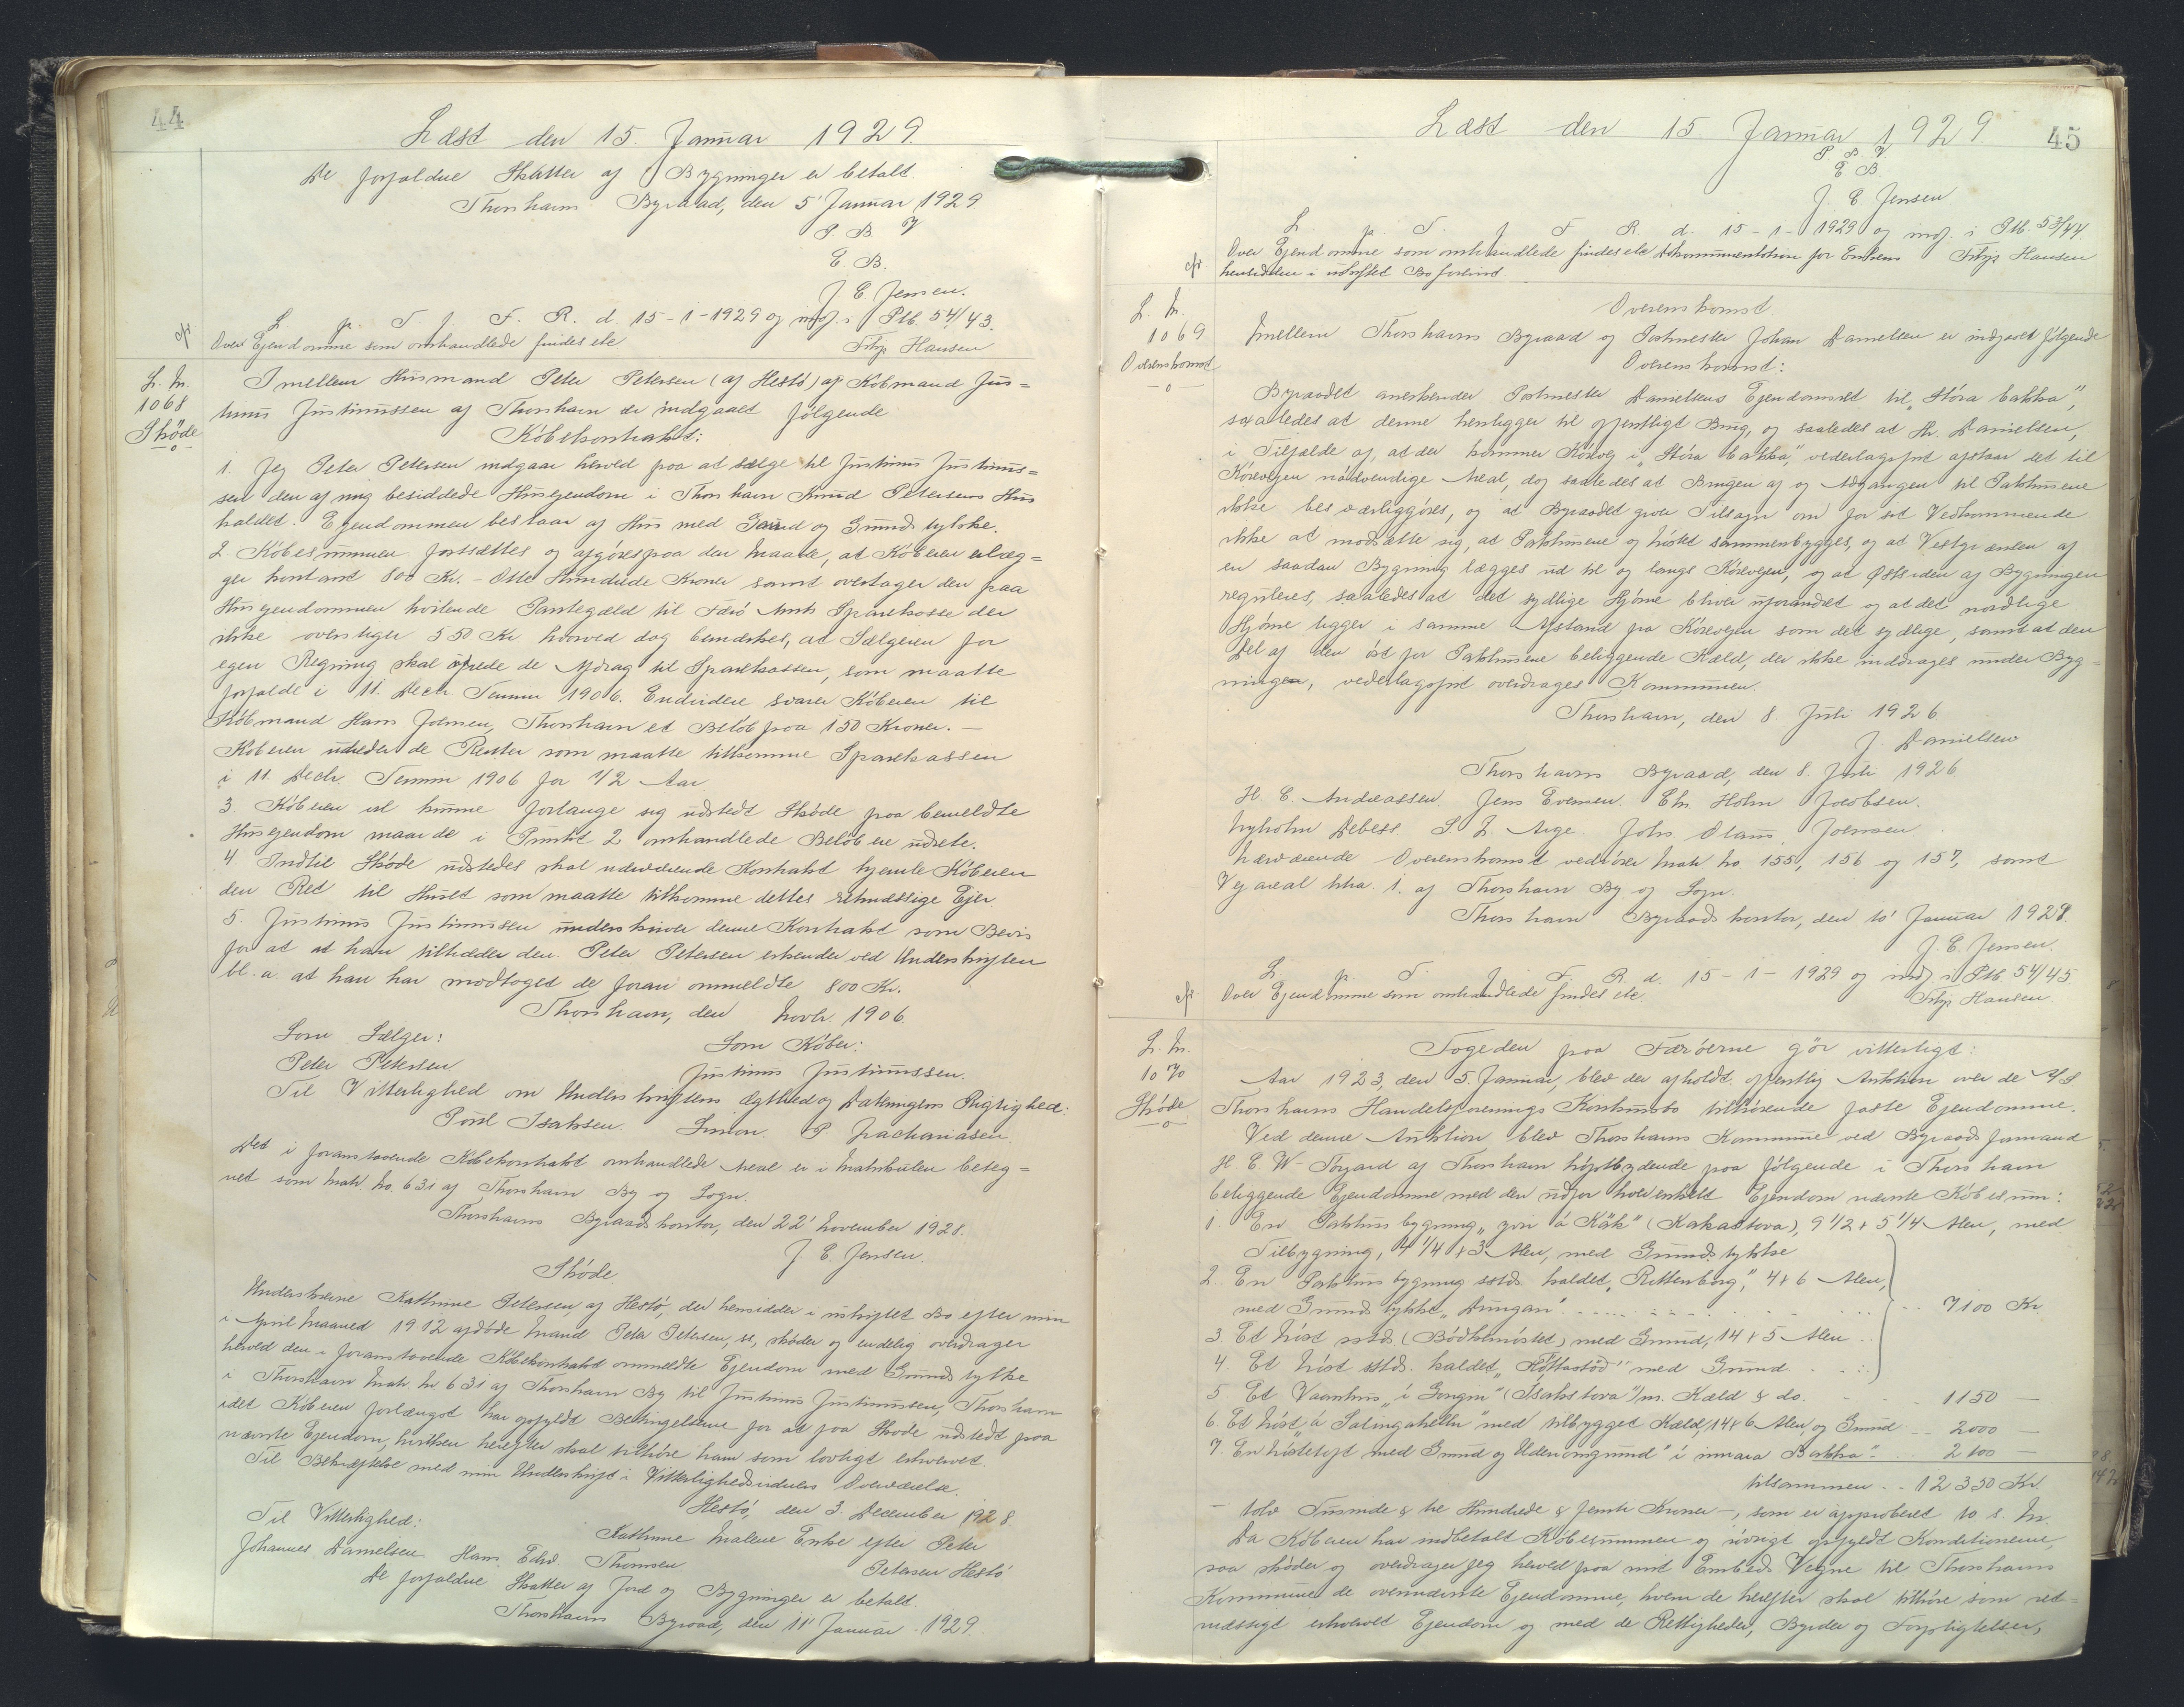 44
Læst den 15. Januar 1929.
De forfaldne Skatter af Bygninger er betalt.
Thorshavns Byraad, den 5' Januar 1929
P. B. V
E. B.
J. E. Jensen.
L. p. T. f. F. R. d. 15-1-1929 og indf. i Ptb. 54/43.
cfr Over Ejendomme som omhandlede findes etc
Filip Hansen
L. Nr.
1068
Skøde
Imellem Husmand Peter Petersen (af Hestø) og Købmand Jus=
tinus Justinussen af Thorshavn er indgaaet følgende
Købekontrakt:
1. Jeg Peter Petersen indgaar herved paa at sælge til Justinus Justinus=
sen den af mig besiddede Husejendom i Thorshavn Knud Petersens Hus
kaldet. Ejendommen bestaar af Hus med Grund og Grundstykke.
2. Købesummen fortsættes og afgøres paa den Maade, at Køberen erlæg=
ger kontant 800 Kr. - Otte Hundrede Kroner samt overtager den paa
Husejendommen hvilende Pantegæld til Færø Amts Sparekasse der
ikke overstiger 550 Kr hvorved dog bemærkes, at Sælgeren for
egen Regning skal udrede de Afdrag til Sparekassen, som maatte
forfalde i 11. Decbr Termin 1906. Endvidere svarer Køberen til
Købmand Hans Joensen, Thorshavn et Beløb paa 150 Kroner. -
Køberen udreder de Renter som maatte tilkomme Sparekassen
i 11. Decbr. Termin 1906 for 1/2 Aar
3 Køberen vil kunne forlange sig udstedt Skøde paa bemeldte
Husejendom naar de i Punkt 2 omhandlede Beløb ere udrete.
4. Indtil Skøde udstedes skal nærværende Kontrakt hjemle Køberen
den Ret til Huset som maatte tilkomme dettes retmæssige Ejer
5. Justinus Justinussen underskriver denne Kontrakt som Bevis
for at at han tiltræder den. Peter Petersen erkender ved Underskriften
bl. a. at han har modtaget de foran ommeldte 800 Kr.
Thorshavn, den Novbr. 1906.
Som Sælger: Som Køber:
Peter Petersen Justinus Justinussen.
Til Vitterlighed om Underskriftens Ægthed og Dateringens Rigtighed:
Poul Isaksen. Simon. P. Zachariasen.
Det i foranstaaende Købekontrakt omhandlede Areal er i Matrikulen beteg=
net som Matr. No. 631 af Thorshavn By og Sogn.
Thorshavns Byraadskontor, den 22' November 1928.
J. E. Jensen.
Skøde.
Underskrevne Kathrine Petersen, af Hestø, der hensidder i uskiftet Bo efter min
i April Maaned 1912 afdøde Mand Peter Petersen, ss, skøder og endelig overdrager
herved den i foranstaaende Købekontrakt ommeldte Ejendom med Grundstykke
i Thorshavn Matr. Nr 631 af Thorshavn By til Justinus Justinussen, Thorshavn
idet Køberen forlængst har opfyldt Betingelserne for at faa Skøde udstedt paa
nævnte Ejendom, hvilken herefter skal tilhøre ham som lovligt erhvervet.
Til Bekræftelse med min Underskrift i Vitterlighedsvidners Overværelse.
Hestø, den 3. December 1928
Til Vitterlighed: Kathrine Malene Enke efter Peter
Johannes Danielsen. Hans Edw. Thomsen Petersen Hestø
De forfaldne Skatter af Jord og Bygninger er betalt.
Thorshavns Byraad, den 11' Januar 1929.
45
Læst den 15. Januar 1929.
P. B. V
E B
J. E. Jensen
L. p. T. f. F R. d. 15-1-1929 og indf. i Ptb. 53/44
cfr Over Ejendomme som omhandlede findes etc Dokumentation for Enkens
hensidden i uskiftet Bo forevist. Filip Hansen
L. Nr.
1069
Overenskomst
Overenskomst
Imellem Thorshavns Byraad og Postmester Johan Danielsen er indgaaet følgende
Overenskomst:
Byraadet anerkender Postmester Danielsens Ejendomsret til "Stóra bakka",
saaledes at denne henligger til offentligt Brug, og saaledes at Hr. Danielsen,
i Tilfælde af, at der kommer Kørevej i "Stóra bakka", vederlagsfrit afstaar det til
Kørevejen nødvendige Areal, dog saaledes at Brugen af og Adgangen til Pakhusene
ikke besværliggøres, og at Byraadet giver Tilsagn om for sit Vedkommende
ikke at modsætte sig, at Pakhusene og hústet sammenbygges, og at Vestgrænsen af
en saadan Bygning lægges ud til og langs Kørevejen, og at Østsiden af Bygningen
reguleres, saaledes at det sydlige Hjørne bliver uforandret og at det nordlige
Hjørne ligger i samme Afstand fra Kørevejen som det sydlige, samt at den
Del af den øst for Pakhusene beliggende Kæld, der ikke inddrages under Byg=
ningen, vederlagsfrit overdrages Kommunen.
Thorshavn, den 8. Juli 1926
J. Danielsen
Thorshavns Byraad, den 8. Juli 1926
H. C. Andreassen. Jens Evensen. Chr. Holm Jacobsen.
Nyholm Debess. S. L. Arge. Johs. Olaus Joensen.
Nærværende Overenskomst vedrører Matr No 155, 156 og 157, samt
Vejareal Litra. i. af Thorshavn By og Sogn.
Thorshavn Byraadskontor, den 10' Januar 1929.
J. E. Jensen.
L. p. T. f. F. R. d. 15-1-1929 og indf. i Ptb. 54/45
cfr Over Ejendomme som omhandlede findes etc. Filip Hansen.
L. Nr.
1070
Skøde
Fogeden paa Færøerne gør vitterligt:
Aar 1923, den 5. Januar, blev der afholdt offentlig Auktion over de A/S
Thorshavns Handelsforenings Konkursbo tilhørende faste Ejendomme.
Ved denne Auktion blev Thorshavns Kommune ved Byraads Formand
H. C. W. Tórgarð af Thorshavn højstbydende paa følgende i Thorshavn
beliggende Ejendomme med den udfor hver enkelt Ejendom nævnte Købesum:
1. En Pakhusbygning "yvir á Kák" (Kákastova), 9 1/2 + 5 1/4 Alen, med
Tilbygning, 4 1/4 + 3 Alen, med Grundstykke
2. En Pakhusbygning sstds. kaldet "Rittenborg", 4 + 6 Alen,
med Grundstykke "Dungan" 7100 Kr.
3. Et húst sstds (Bødkerhústet) med Grund, 14 + 5 Alen
4. Et húst sstds. kaldet med Grund
5. Et Vaanhus "í Gongin" (Ísakstova") m. Kæld & do. 1150 -
6. Et húst "á Salingahellu" med tilbygget Kæld, 14 + 6 Alen, og Grund 2000 -
7. En med Grund og Udenomsgrund "í innara Bakka" 2100 -
tilsammen 12350 Kr.
- tolv Tusinde & tre Hundrede & femti Kroner -, som er approberet 10 s. M.
Da Køberen har indbetalt Købesummen og iøvrigt opfyldt Konditionerne,
saa skøder og overdrager jeg herved paa mit Embeds Vegne til Thorshavns
Kommune de ovennævnte Ejendomme, hvem de herefter skal tilhøre som ret=
mæssigt erhvervet Ejendom og med de Rettigheder, Byrder og Forpligtelser,